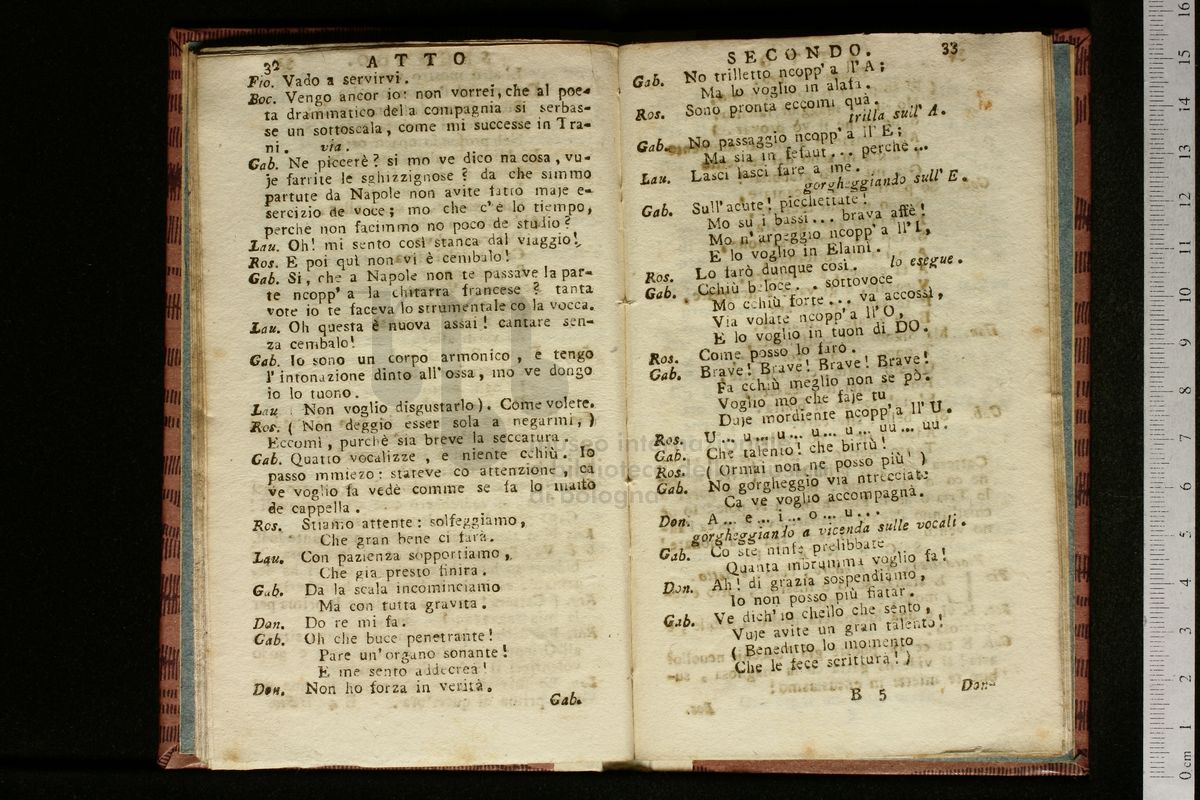 32
ATTO
Fio. Vado a servirvi.
Boc. Vengo ancor io: non vorrei, che al poe-
ta drammatico della compagnia si serbas-
se un sottoscala, come mi successe in Tra-
ni. via.
Gab. Ne piccerè? si mo ve dico na cosa, vu-
je farrite le sghizzignose? da che simmo
partute da Napole non avite fatto maje e-
sercizio de voce; mo che c'è lo tiempo,
perche non facimmo no poco de studio?
Lau. Oh! mi sento così stanca dal viaggio!
Ros. E poi quì non vi è cembalo!
Gab. Si, che a Napole non te passave la par-
te ncopp' a la chitarra francese? tanta
vote io te faceva lo strumentale co la vocca.
Lau. Oh questa è nuova assai! cantare sen-
za cembalo!
Gab. Io sono un corpo armonico, e tengo
l'intonazione dinto all'ossa, mo ve dongo
io lo tuono.
Lau. Non voglio disgustarlo). Come volete.
Ros. (Non deggio esser sola a negarmi,)
Eccomi, purchè sia breve la seccatura.
Gab. Quatto vocalizze, e niente cchiù. Io
passo mmiezo: stateve co attenzione, ca
ve voglio fa vedè comme se fa lo masto
de cappella.
Ros. Stiamo attente: solfeggiamo,
Che gran bene ci farà.
Lau. Con pazienza sopportiamo,
Che già presto finirà.
Gab. Da la scala incominciamo
Ma con tutta gravità.
Don. Do re mi fa.
Gab. Oh che buce penetrante!
Pare un'organo sonante!
E me sento addecreà!
Don. Non ho forza in verità.
Gab.
SECONDO.
33
Gab. No trilletto ncopp'a ll'A;
Ma lo voglio in alafà.
Ros. Sono pronta eccomi quà.
trilla sull'A.
Gab. No passaggio ncopp'a ll'E;
Ma sia in fefaut... perchè...
Lau. Lasci lasci fare a me.
gorgheggiando sull'E.
Gab. Sull'acute! picchettate!
Mo su i bassi... brava affè!
Mo n'arpeggio ncopp'a ll'I,
E lo voglio in Elamì.
Ros. Lo farò dunque così. lo esegue.
Gab. Cchiù beloce.. sottovoce
Mo cchiù forte... va accossì,
Via volate ncopp'a ll'O,
E lo voglio in tuon di DO.
Ros. Come posso lo farò.
Gab. Brave! Brave! Brave! Brave!
Fa cchiù meglio non se pò.
Voglio mo che faje tu
Duje mordiente ncopp'a ll'U.
Ros. U... u... u... u... u... uu... uu.
Gab. Che talento! che birtù!
Ros. (Ormai non ne posso più!)
Gab. No gorgheggio via ntrecciate
Ca ve voglio accompagnà.
Don. A... e... i... o... u...
gorgheggiando a vicenda sulle vocali.
Gab. Co ste ninfe prelibbate
Quanta mbrumma voglio fa!
Don. Ah! di grazia sospendiamo,
Io non posso più fiatar.
Gab. Ve dich'io chello che sento,
Vuje avite un gran talento!
(Beneditto lo momento
Che le fece scritturà!)
B 5
Don-